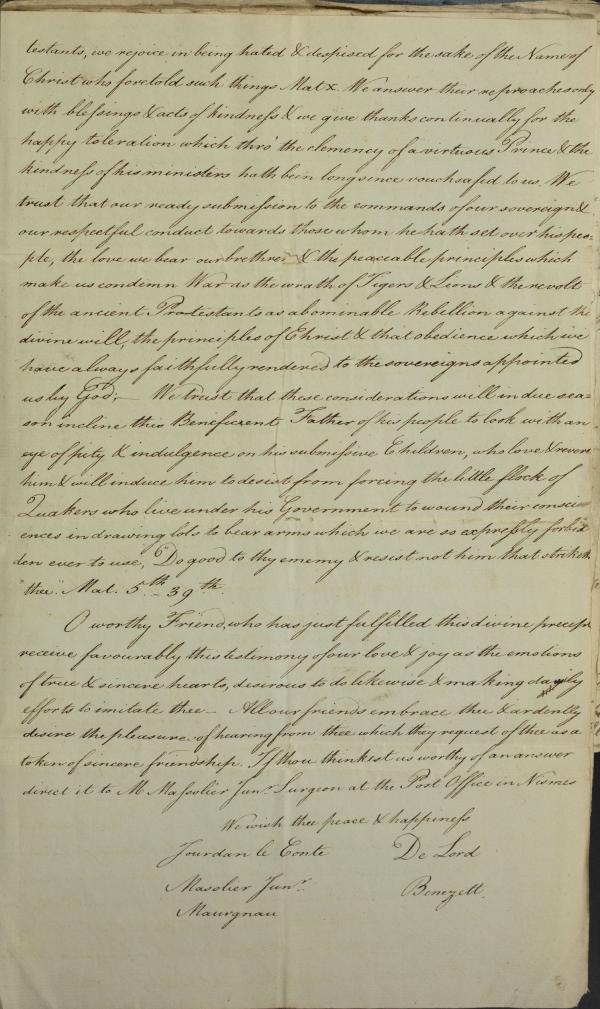 testants, we rejoice in being hated & despised for the sake of the Name of
Christ who foretold such things Mat x. We answer their reproaches only
with blessings & acts of kindness & we give thanks continually for the
happy toleration which thro' the clemency of a virtuous Prince & the
kindness of his ministers hath been long since vouchsafed to us. We
trust that our ready submission to the commands of our sovereign &
our respectful conduct towards those whom he hath set over his peo=
ple, the love we bear our brethren & the peaceable principles which
make us condemn War as the wrath of Tigers & Lions & the revolt
of the ancient Protestants as abominable Rebellion against the
divine will, the principles of Christ & that obedience which we
have always faithfully rendered to the sovereigns appointed
us by God; — We trust that these considerations will in due sea=
son incline this Beneficent Father of his people to look with an
eye of pity & indulgence on his submissive Children, who love & revere
him & will induce him to desist from forcing the little flock of
Quakers who live under his Government to wound their consci
ences in drawing lots to bear arms which we are so expressly forbid
den ever to use, "Do good to thy enemy & resist not him that striketh
"thee". Mat. 5.th 39th.
O worthy Friend, who has just fulfilled this divine precept
receive favourably this testimony of our love & joy as the emotions
of true & sincere hearts, desirous to do likewise & making daily
efforts to imitate thee — All our friends embrace thee & ardently
desire the pleasure of hearing from thee which they request of thee as a
token of sincere friendship. If thou thinkest us worthy of an answer
direct it to M Massolier Junr. Surgeon at the Post Office in Nismes
We wish thee peace & happiness
Jourdan le Conte De Lord
Masolier Junr. Benezett.
Maurgnau